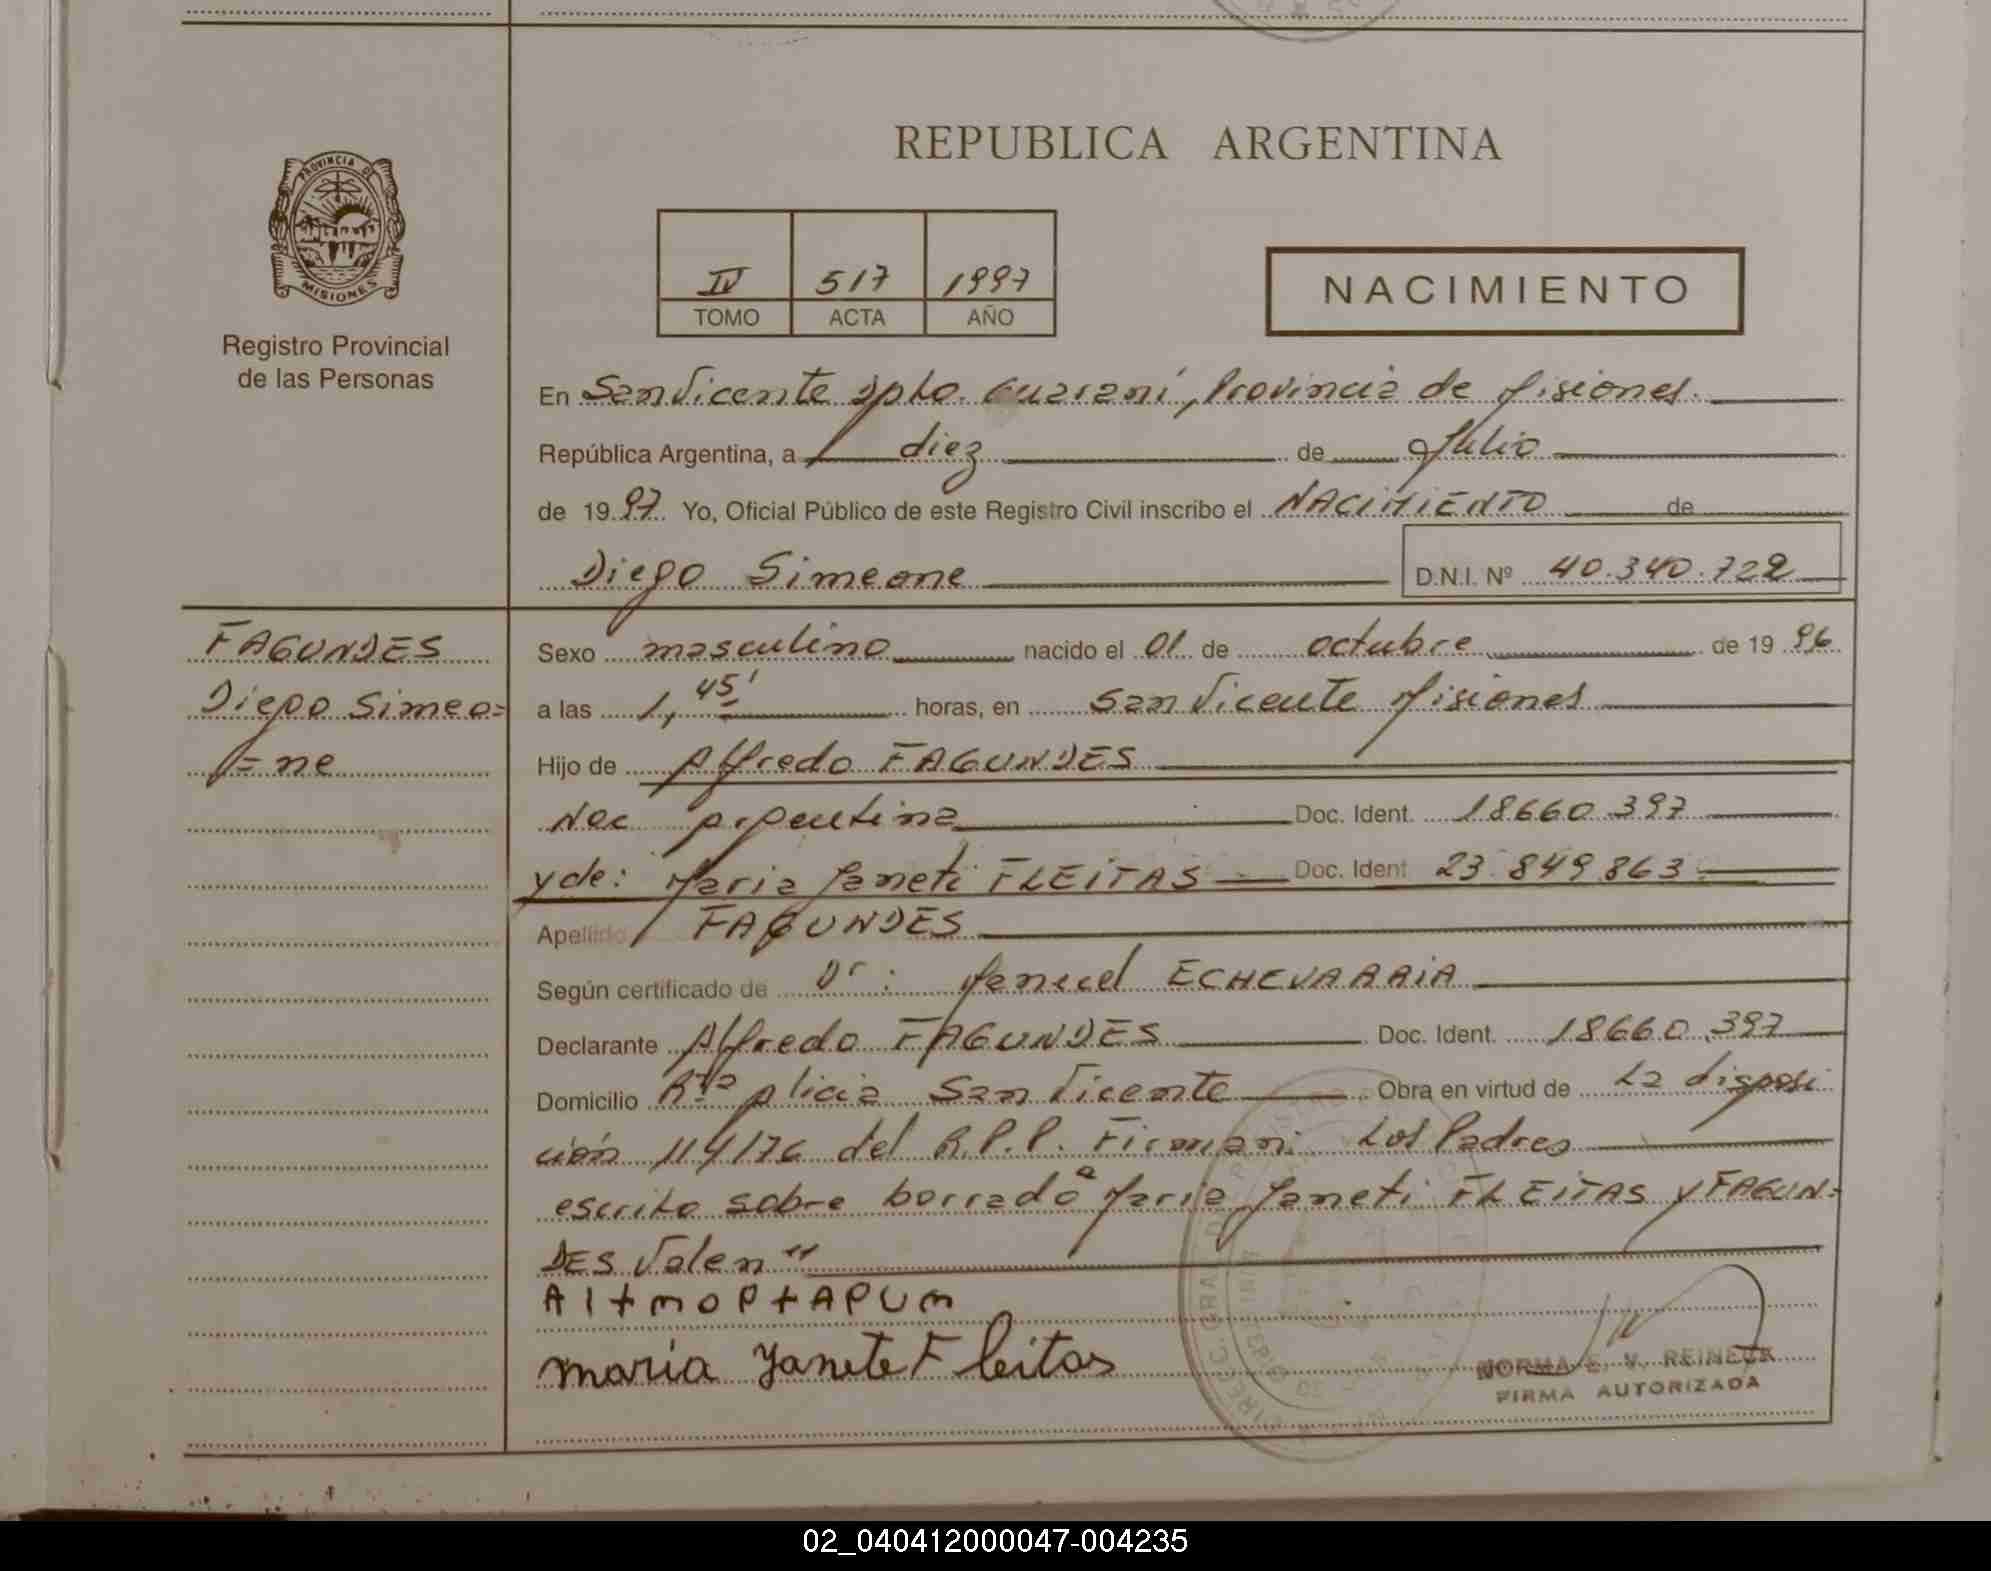 REPUBLICA ARGENTINA
PROVINCIA DE
MISIONES
Registro Provincial
de las Personas
IV 517 1997
TOMO ACTA AÑO
NACIMIENTO
En San Vicente Dpto. Guaraní, Provincia de Misiones.
República Argentina, a diez de Julio
de 1997 Yo, Oficial Público de este Registro Civil inscribo el NACIMIENTO de
Diego Simeone D.N.I. Nº 40.340.722
FAGUNDES
Diego Simeo=
=ne
Sexo masculino nacido el 01 de octubre de 1996
a las 1,45' horas, en San Vicente Misiones
Hijo de Alfredo FAGUNDES
Nac Argentina Doc. Ident. 18660.397
y de: Maria Janeti FLEITAS Doc. Ident 23.849.863
Apellido FAGUNDES
Según certificado de Dr: Manuel ECHEVARRIA
Declarante Alfredo FAGUNDES Doc. Ident. 18660.397
Domicilio Alicia San Vicente Obra en virtud de La disposi
ción 114/76 del R.P.P. Firman: Los Padres
escrito sobre borrado "Maria Janeti FLEITAS y FAGUN=
DES Valen"
maria Yanete Fleitas
NORMA E. V. REINECK
FIRMA AUTORIZADA
02_040412000047-004235